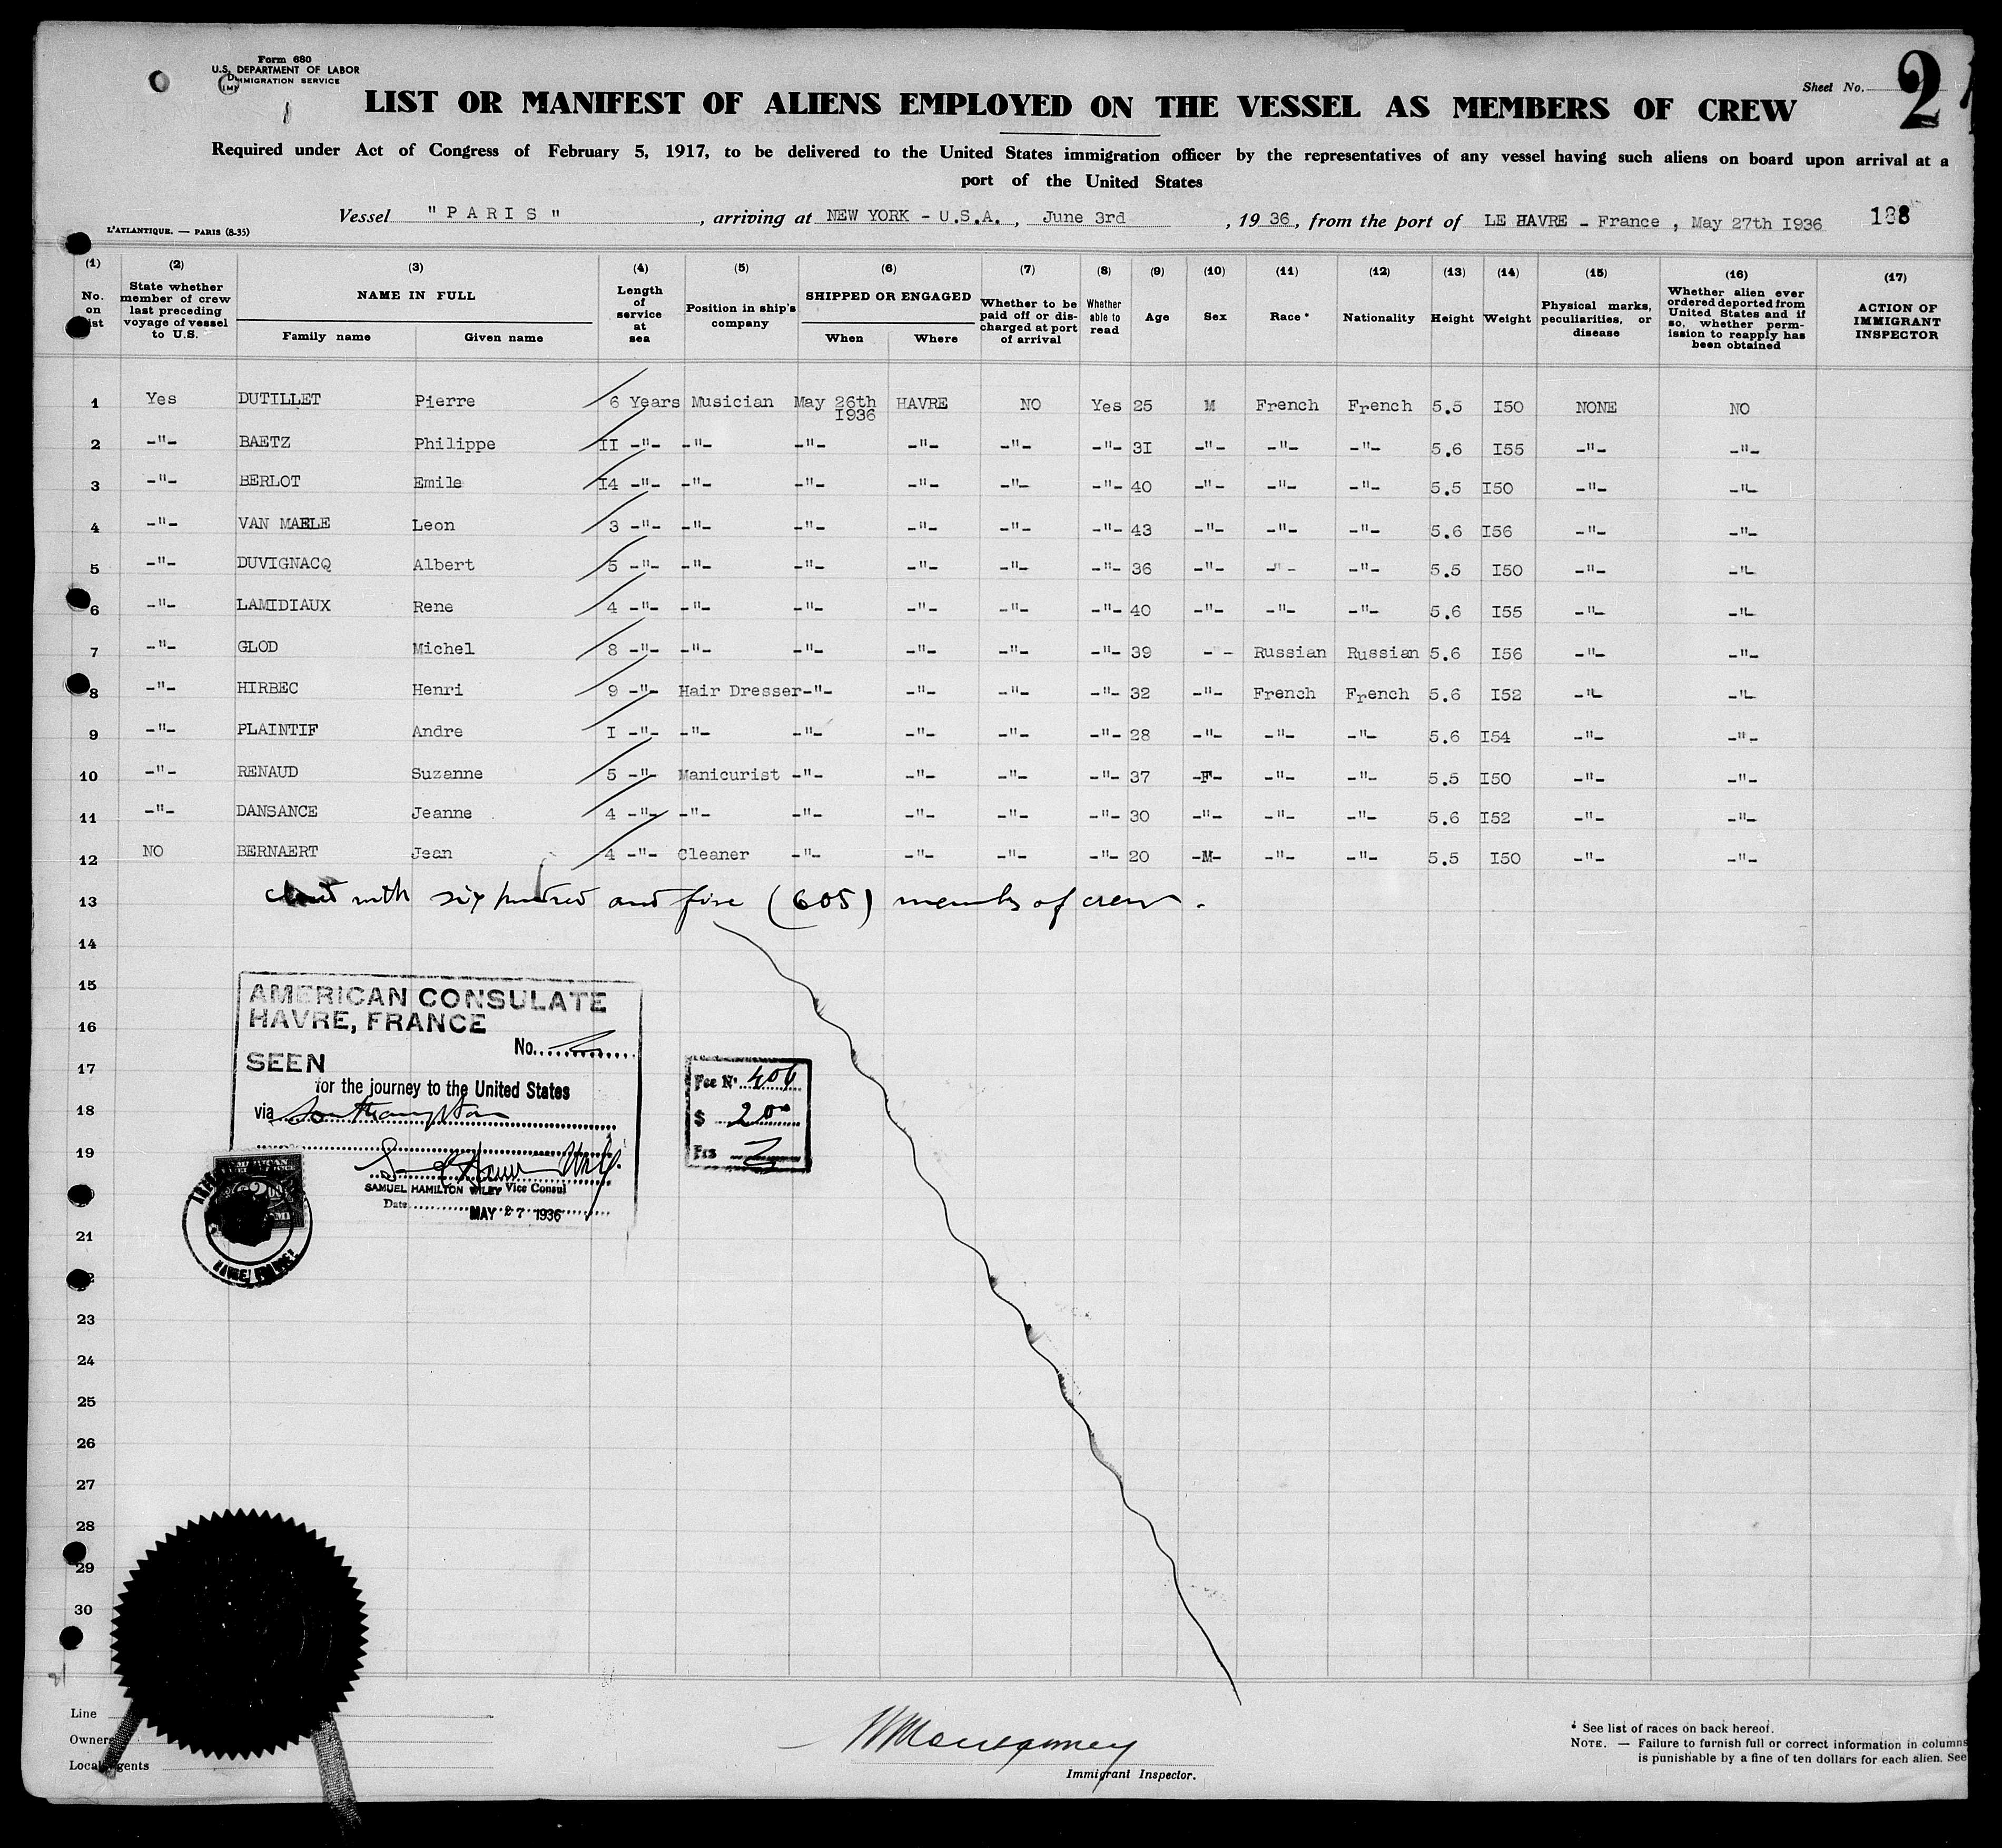 Form 680
U.S. DEPARTMENT OF LABOR
IMMIGRATION SERVICE
Sheet No. 2
LIST OR MANIFEST OF ALIENS EMPLOYED ON THE VESSEL AS MEMBERS OF CREW
Required under Act of Congress of February 5, 1917, to be delivered to the United States immigration officer by the representatives of any vessel having such aliens on board upon arrival at a
port of the United States
Vessel "PARIS", arriving at NEW YORK - U.S.A., June 3rd, 1936, from the port of LE HAVRE - France, May 27th I936 188
L'ATLANTIQUE. — PARIS (8-35)
(1) No. on list
(2) State whether member of crew last preceding voyage of vessel to U.S.
(3) NAME IN FULL Family name Given name
(4) Length of service at sea
(5) Position in ship's company
(6) SHIPPED OR ENGAGED When Where
(7) Whether to be paid off or discharged at port of arrival
(8) Whether able to read
(9) Age
(10) Sex
(11) Race *
(12) Nationality
(13) Height
(14) Weight
(15) Physical marks, peculiarities, or disease
(16) Whether alien ever ordered deported from United States and if so, whether permission to reapply has been obtained
(17) ACTION OF IMMIGRANT INSPECTOR
1 Yes DUTILLET Pierre 6 Years Musician May 26th I936 HAVRE NO Yes 25 M French French 5.5 I50 NONE NO
2 -"- BAETZ Philippe II -"- -"- -"- -"- -"- -"- 3I -"- -"- -"- 5.6 I55 -"- -"-
3 -"- BERLOT Emile I4 -"- -"- -"- -"- -"- -"- 40 -"- -"- -"- 5.5 I50 -"- -"-
4 -"- VAN MAELE Leon 3 -"- -"- -"- -"- -"- -"- 43 -"- -"- -"- 5.6 I56 -"- -"-
5 -"- DUVIGNACQ Albert 5 -"- -"- -"- -"- -"- -"- 36 -"- -"- -"- 5.5 I50 -"- -"-
6 -"- LAMIDIAUX Rene 4 -"- -"- -"- -"- -"- -"- 40 -"- -"- -"- 5.6 I55 -"- -"-
7 -"- GLOD Michel 8 -"- -"- -"- -"- -"- -"- 39 -"- Russian Russian 5.6 I56 -"- -"-
8 -"- HIRBEC Henri 9 -"- Hair Dresser -"- -"- -"- -"- 32 -"- French French 5.6 I52 -"- -"-
9 -"- PLAINTIF Andre I -"- -"- -"- -"- -"- -"- 28 -"- -"- -"- 5.6 I54 -"- -"-
10 -"- RENAUD Suzanne 5 -"- Manicurist -"- -"- -"- -"- 37 -F- -"- -"- 5.5 I50 -"- -"-
11 -"- DANSANCE Jeanne 4 -"- -"- -"- -"- -"- -"- 30 -"- -"- -"- 5.6 I52 -"- -"-
12 NO BERNAERT Jean 4 -"- Cleaner -"- -"- -"- -"- 20 -M- -"- -"- 5.5 I50 -"- -"-
13 with six hundred and five (605) members of crew.
14
15
AMERICAN CONSULATE
HAVRE, FRANCE
16
No.
SEEN
17
for the journey to the United States
Fee No. 406
18
via Southampton
$ 2.00
19
Frs
SAMUEL HAMILTON WILEY Vice Consul
Date MAY 27 1936
21
23
24
25
26
27
28
29
30
Line
Owners
Local Agents
Montgomery
Immigrant Inspector.
* See list of races on back hereof.
NOTE. — Failure to furnish full or correct information in columns
is punishable by a fine of ten dollars for each alien. See